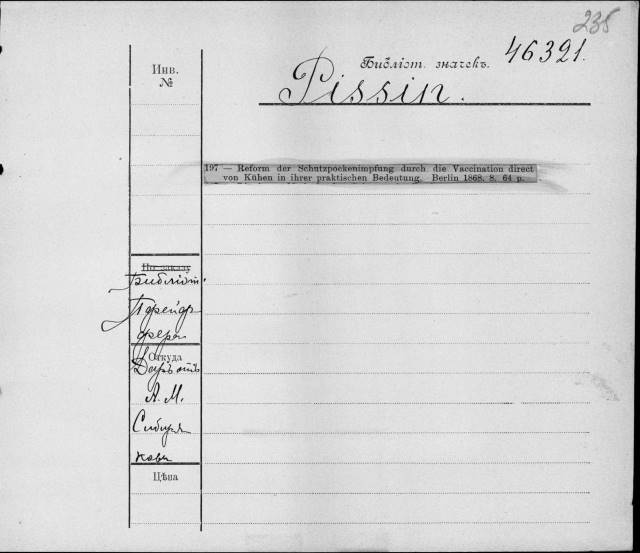 235
46321.
Библіот. значекъ.
Инв.
№
Pissin.
197 — Reform der Schutzpockenimpfung durch die Vaccination direct
von Kühen in ihrer praktischen Bedeutung. Berlin 1868. 8. 64 p.
По заказу
Библіот.
Пфейф
фера
Откуда
Даръ отъ
А. М.
Сибиря
кова
Цѣна